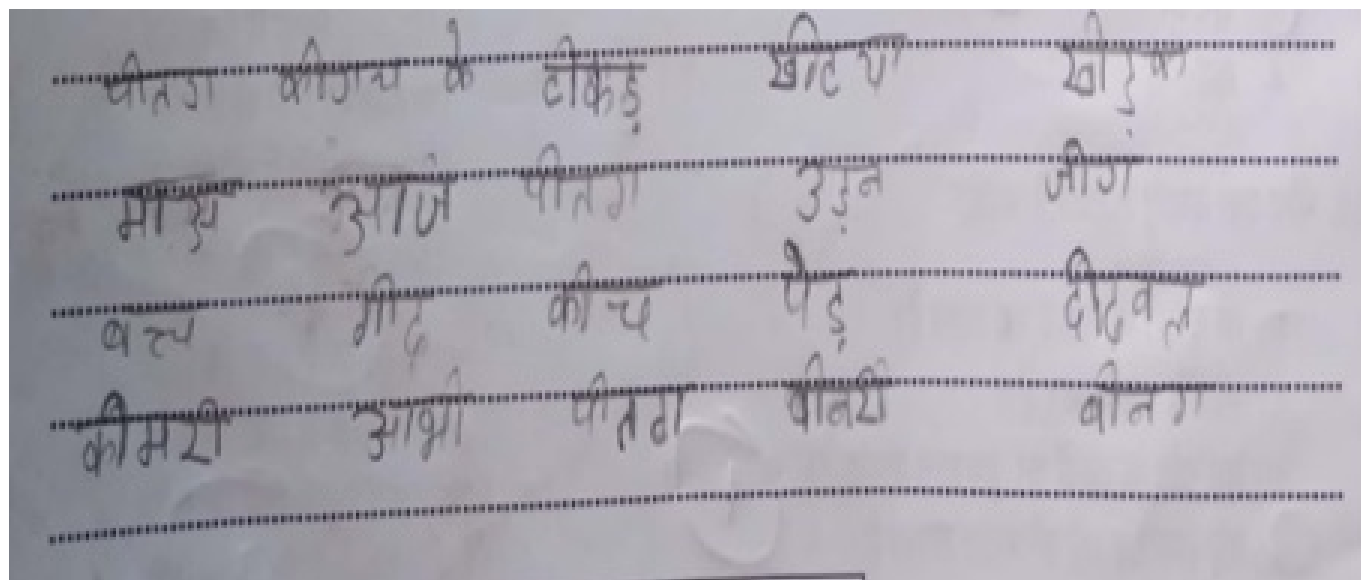 पीतग कीगच के टीकड़ खीटय खीड़क
मास आजे पीतग उड़न जीग
बच्च गीद कीच पेड़ दीदवल
कीमरी आभी पीतग बीनरी बीनग